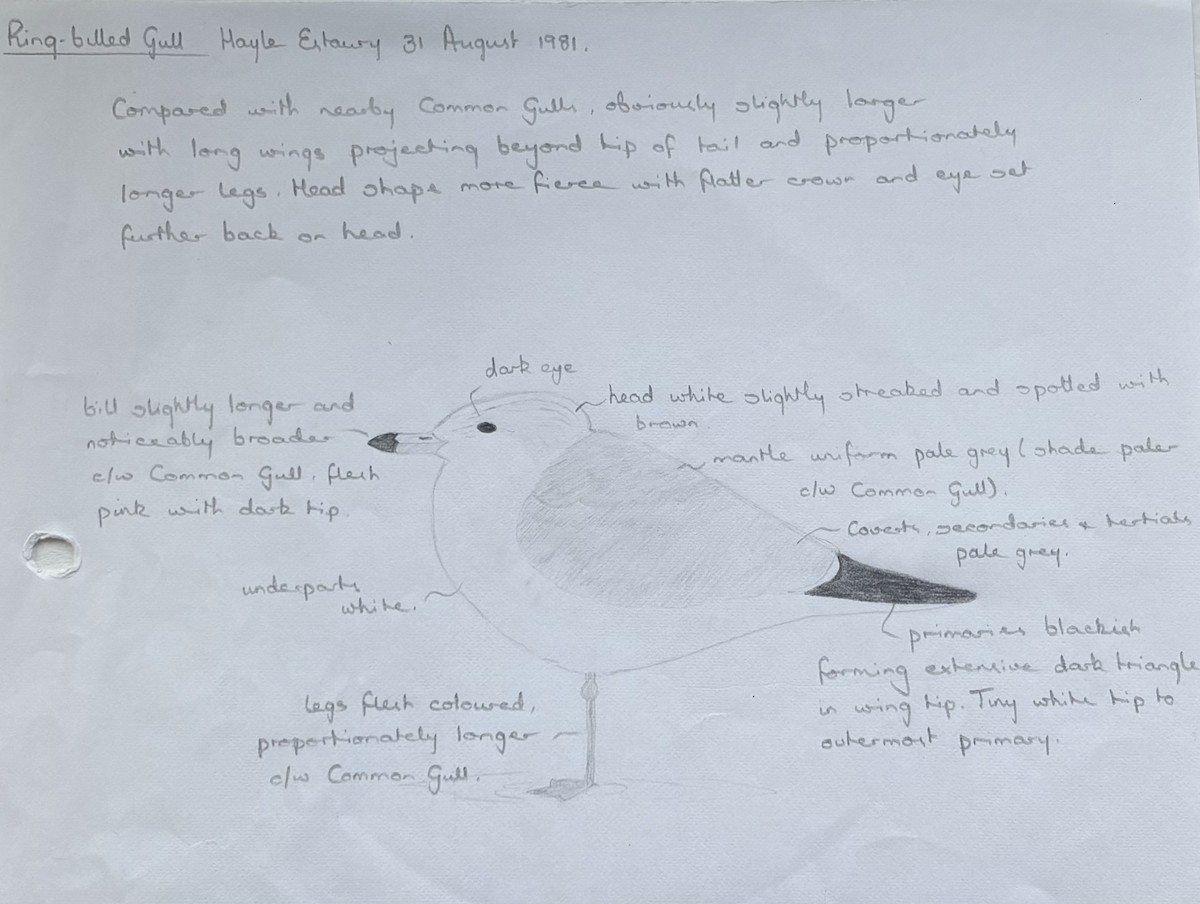 Ring-billed Gull Hayle Estuary 31 August 1981.
Compared with nearby Common Gulls, obviously slightly larger
with long wings projecting beyond tip of tail and proportionately
longer legs. Head shape more fierce with flatter crown and eye set
further back on head.
dark eye
head white slightly streaked and spotted with
brown.
bill slightly longer and
noticeably broader
c/w Common Gull, flesh
pink with dark tip.
mantle uniform pale grey (shade paler
c/w Common Gull).
Coverts, secondaries + tertials
pale grey.
underparts
white.
primaries blackish
forming extensive dark triangle
in wing tip. Tiny white tip to
outermost primary.
legs flesh coloured,
proportionately longer
c/w Common Gull.